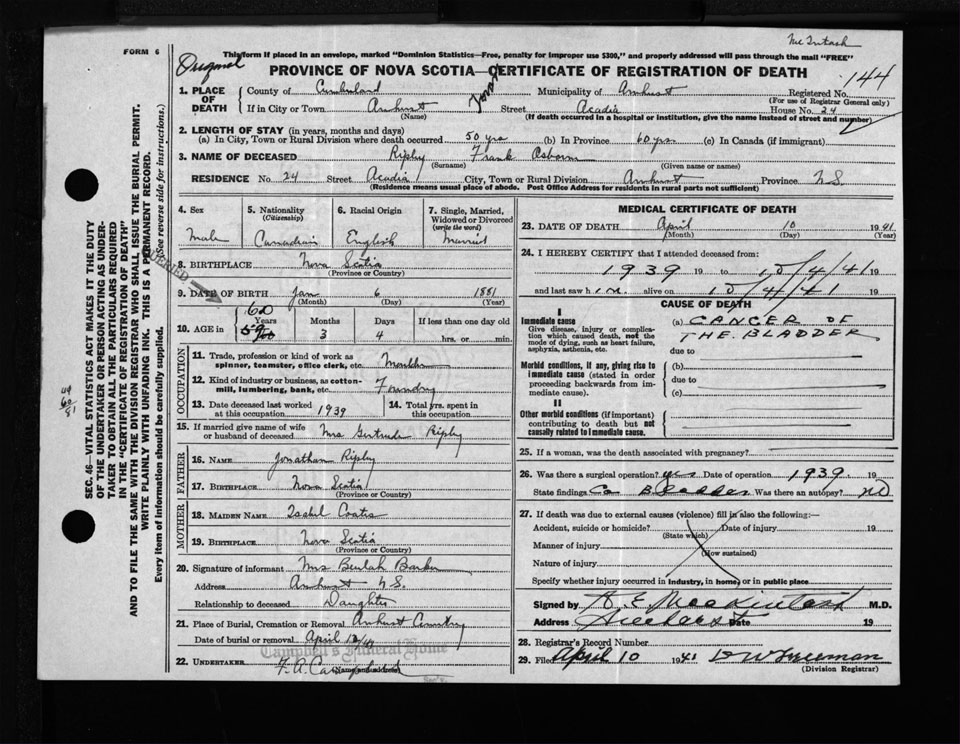 Mc Intosh
FORM 6
This form if placed in an envelope, marked "Dominion Statistics—Free, penalty for improper use $300," and properly addressed will pass through the mail "FREE"
Original
PROVINCE OF NOVA SCOTIA—CERTIFICATE OF REGISTRATION OF DEATH
144
1. PLACE OF DEATH County of Cumberland Municipality of Amherst Registered No.
(For use of Registrar General only)
If in City or Town Amherst Street Acadia House No. 24
(Name) (If death occurred in a hospital or institution, give the name instead of street and number)
2. LENGTH OF STAY (in years, months and days)
(a) In City, Town or Rural Division where death occurred 50 yrs (b) In Province 60 yrs (c) In Canada (if immigrant)
3. NAME OF DECEASED Ripley Frank Osborn
(Surname) (Given name or names)
RESIDENCE No. 24 Street Acadia City, Town or Rural Division Amherst Province N.S.
(Residence means usual place of abode. Post Office Address for residents in rural parts not sufficient)
4. Sex 5. Nationality (Citizenship) 6. Racial Origin 7. Single, Married, Widowed or Divorced (write the word)
Male Canadian English Married
8. BIRTHPLACE Nova Scotia
(Province or Country)
9. DATE OF BIRTH Jan 6 1881
(Month) (Day) (Year)
60
10. AGE in Years Months Days If less than one day old
59 3 4 hrs. or min.
OCCUPATION
11. Trade, profession or kind of work as spinner, teamster, office clerk, etc. Moulder
12. Kind of industry or business, as cotton-mill, lumbering, bank, etc. Foundry
13. Date deceased last worked at this occupation 1939 14. Total yrs. spent in this occupation
15. If married give name of wife or husband of deceased Mrs Gertrude Ripley
FATHER
16. NAME Jonathan Ripley
17. BIRTHPLACE Nova Scotia
(Province or Country)
MOTHER
18. MAIDEN NAME Isabel Coates
19. BIRTHPLACE Nova Scotia
(Province or Country)
20. Signature of informant Mrs Beulah Barker
Address Amherst N.S.
Relationship to deceased Daughter
21. Place of Burial, Cremation or Removal Amherst Cemetery
Date of burial or removal April 12/41
Campbell's Funeral Home
22. UNDERTAKER F. A. Campbell
(Name and address)
MEDICAL CERTIFICATE OF DEATH
23. DATE OF DEATH April 10 1941
(Month) (Day) (Year)
24. I HEREBY CERTIFY that I attended deceased from:
1939 19 to 10/4/41 19
and last saw him alive on 10/4/41 19
CAUSE OF DEATH
I
Immediate cause (a) CANCER OF
Give disease, injury or complication which caused death, not the mode of dying, such as heart failure, asphyxia, asthenia, etc. THE BLADDER
due to
Morbid conditions, if any, giving rise to immediate cause (stated in order proceeding backwards from immediate cause). (b)
due to
(c)
II
Other morbid conditions (if important) contributing to death but not causally related to immediate cause.
25. If a woman, was the death associated with pregnancy?
26. Was there a surgical operation? yes Date of operation 1939 19
State findings Ca Bladder Was there an autopsy? no
27. If death was due to external causes (violence) fill in also the following:—
Accident, suicide or homicide? Date of injury 19
(State which)
Manner of injury
(How sustained)
Nature of injury
Specify whether injury occurred in industry, in home, or in public place
Signed by A. E. Mackintosh M.D.
Address Amherst Date 19
28. Registrar's Record Number
29. Filed April 10 1941 D W Freeman
(Division Registrar)
SEC. 46—VITAL STATISTICS ACT MAKES IT THE DUTY
OF THE UNDERTAKER OR PERSON ACTING AS UNDER-
TAKER TO OBTAIN ALL THE PARTICULARS REQUIRED
IN THE "CERTIFICATE OF REGISTRATION OF DEATH"
AND TO FILE THE SAME WITH THE DIVISION REGISTRAR WHO SHALL ISSUE THE BURIAL PERMIT.
WRITE PLAINLY WITH UNFADING INK. THIS IS A PERMANENT RECORD.
Every item of information should be carefully supplied. (See reverse side for instructions.)